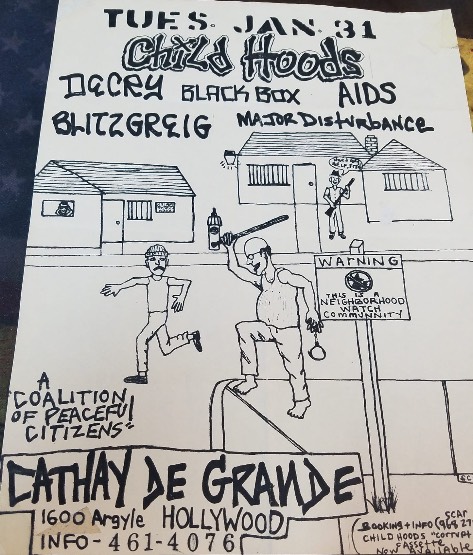 TUES. JAN. 31
Child Hoods
DECRY BLACK BOX AIDS
BLITZGREIG MAJOR DISTURBANCE
WARNING
THIS IS A
NEIGHBORHOOD
WATCH
COMMUNNITY
A
"COALITION
OF PEACEFUL
CITIZENS"
CATHAY DE GRANDE
1600 Argyle HOLLYWOOD
INFO - 461-4076
SCAR
BOOKING + INFO (
CHILD HOODS "CORRUPT
CASSETTE
NOW Available